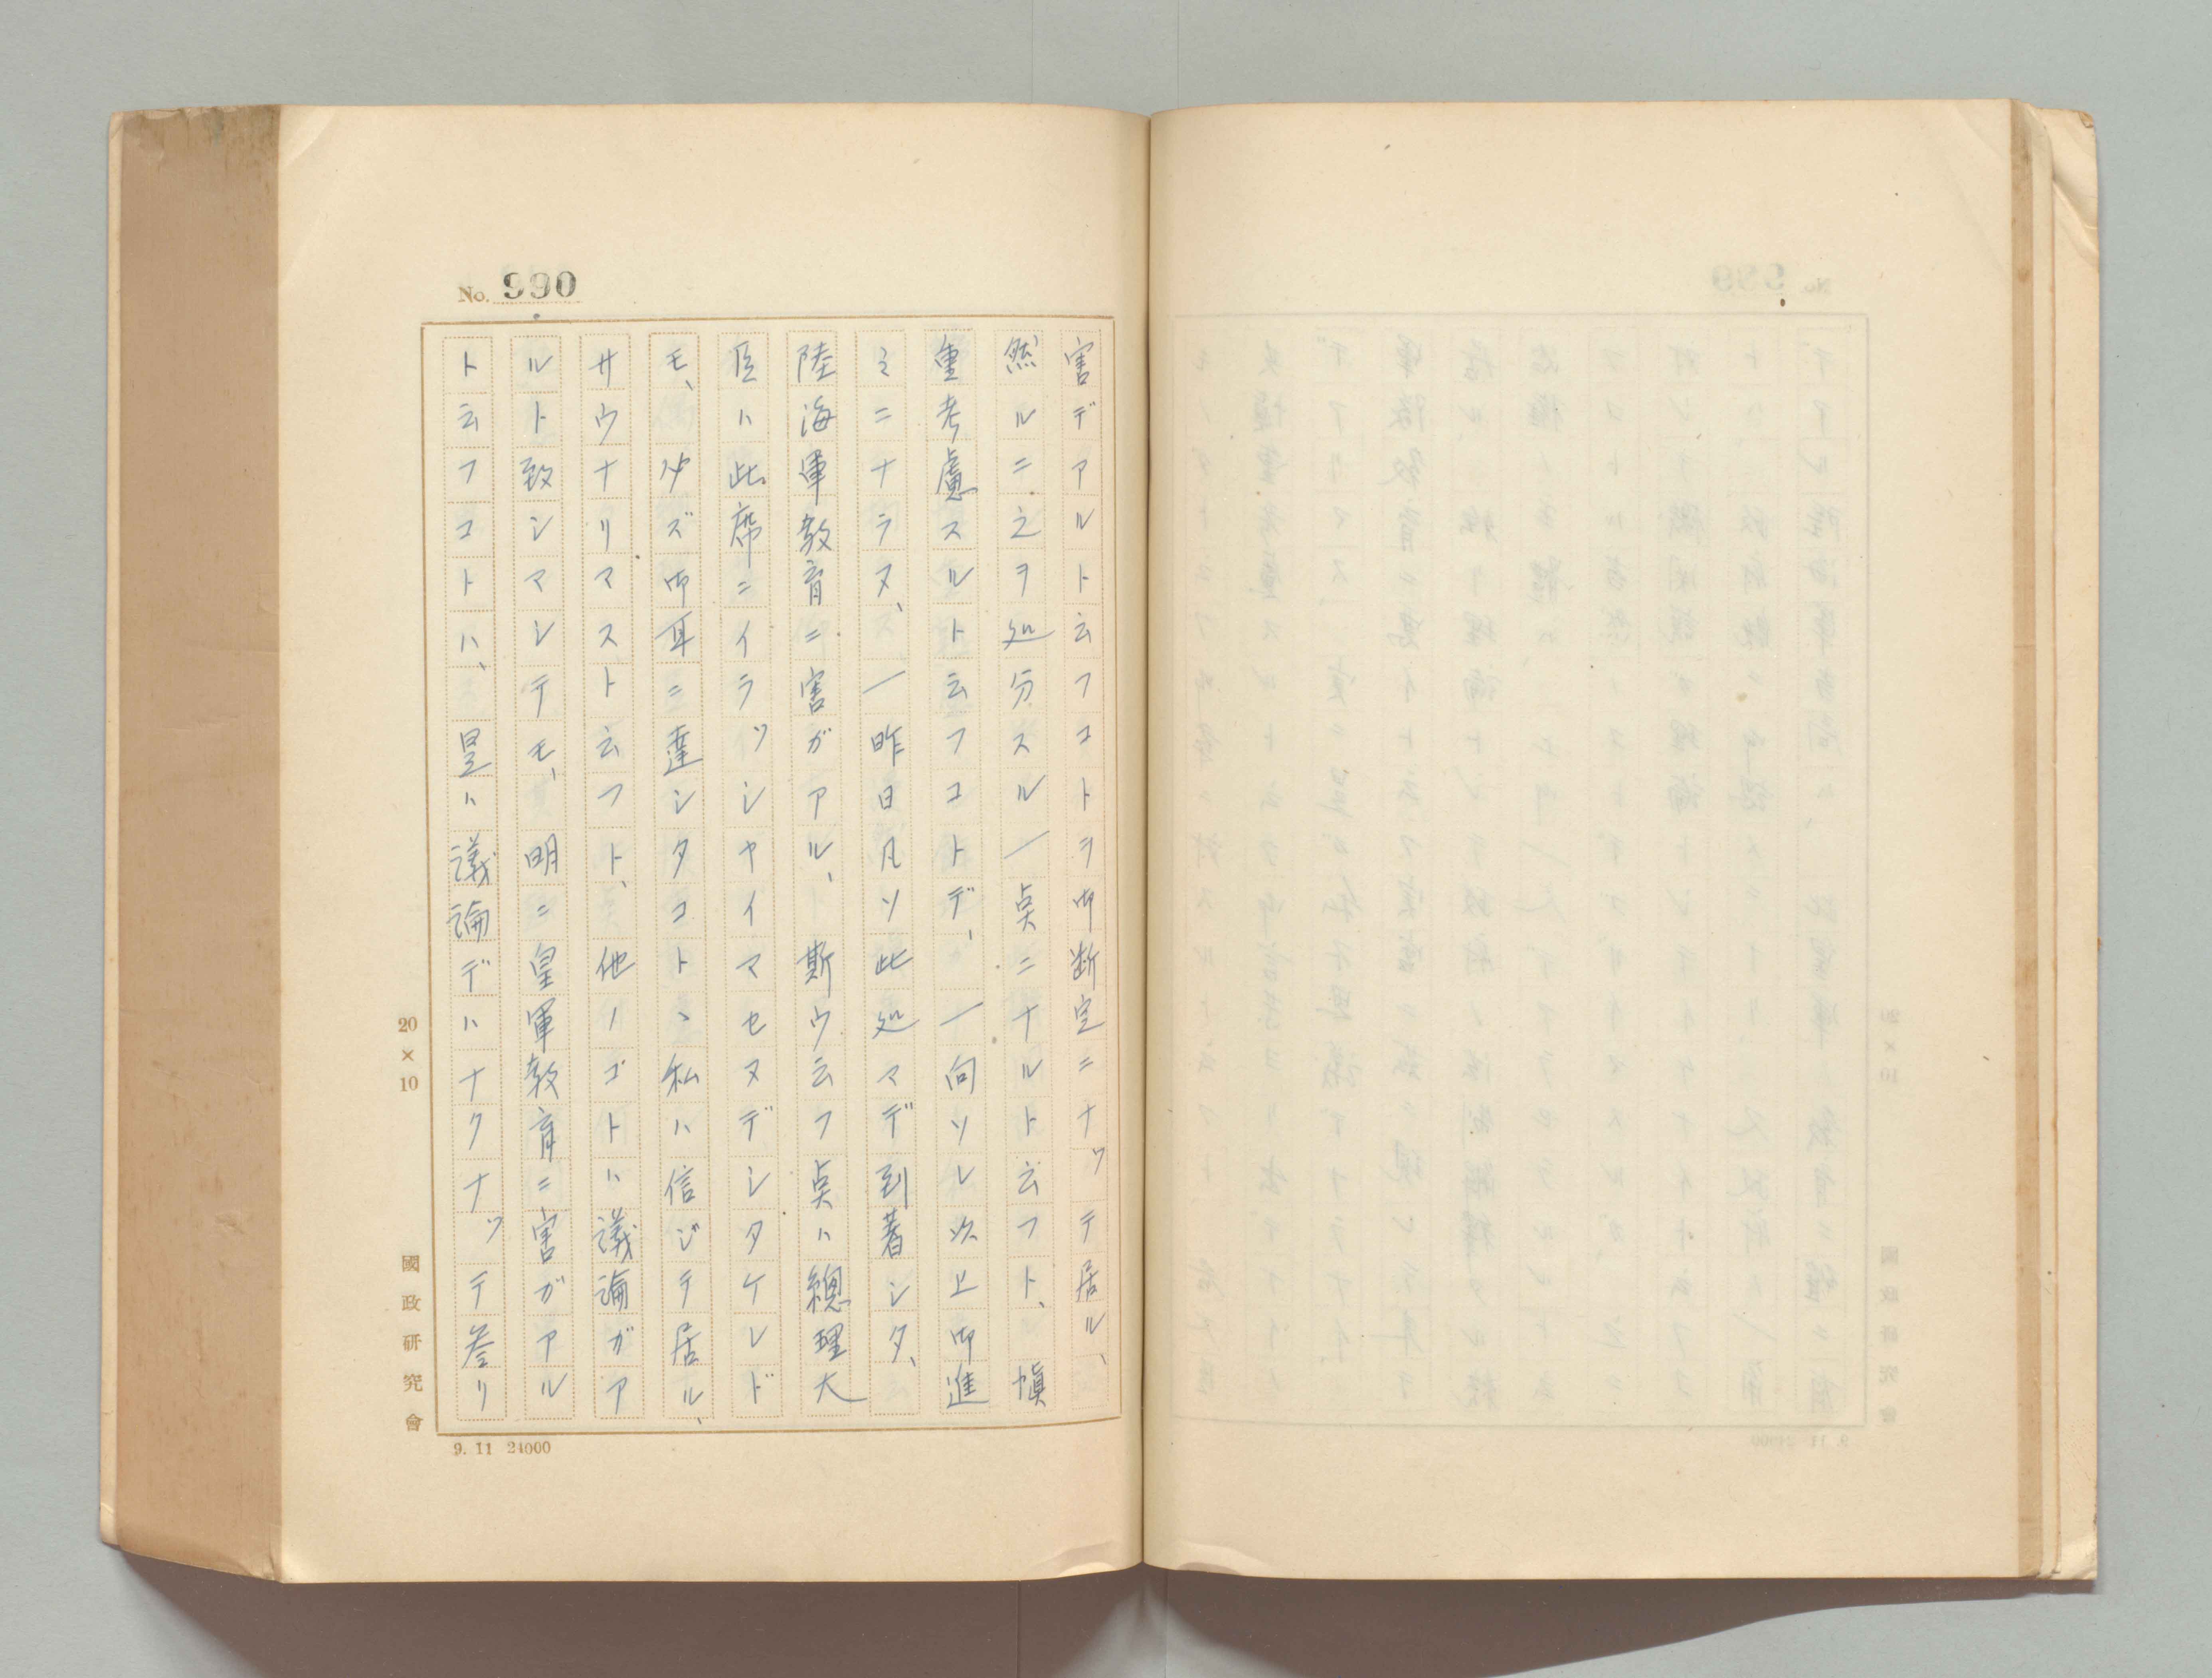 No. 990
害デアルト云フコトヲ御断定ニナツテ居ル、
然ルニ之ヲ処分スル一点ニナルト云フト、愼
重考慮スルト云フコトデ、一向ソレ以上御進
ミニナラヌ、一昨日凡ソ此処マデ到著シタ、
陸海軍教育ニ害ガアル、斯ウ云フ点ハ總理大
臣ハ此席ニイラツシヤイマセヌデシタケレド
モ、必ズ御耳ニ達シタコトヽ私ハ信ジテ居ル、
サウナリマスト云フト、他ノコトハ議論ガア
ルト致シマシテモ、明ニ皇軍教育ニ害ガアル
ト云フコトハ、是ハ議論デハナクナツテ参リ
20×10
國政研究會
9. 11 24000